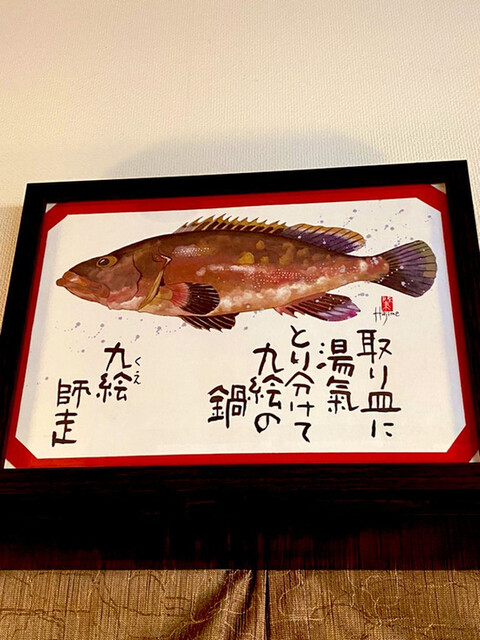 取り皿に
湯氣
とり分けて
九絵の
鍋
九絵
くえ
師走
Hajime